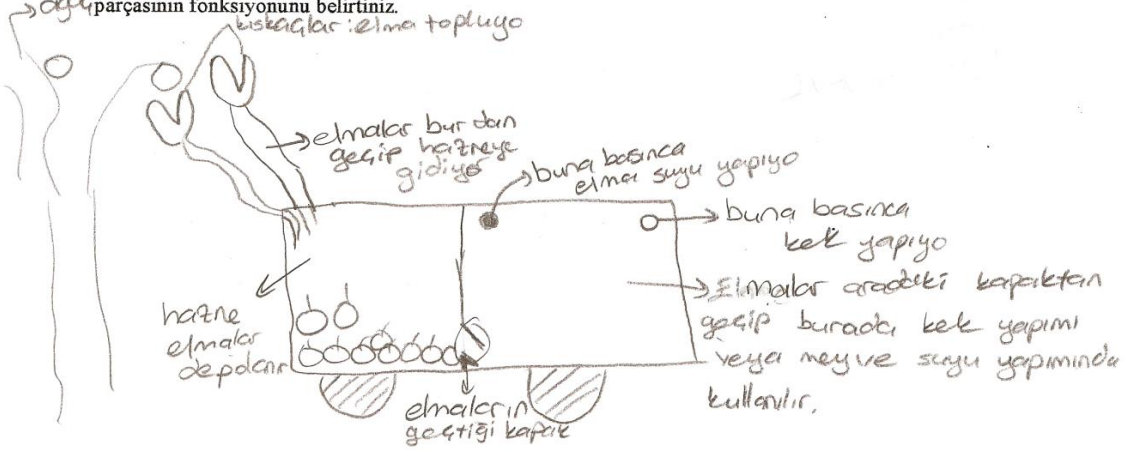 parçasının fonksiyonunu belirtiniz.
kıskaçlar : elma topluyo
elmalar burdan
geçip hazneye
gidiyor
buna basınca
elma suyu yapıyo
buna basınca
kek yapıyo
Elmalar aradaki kapaktan
geçip burada kek yapımı
veya meyve suyu yapımında
kullanılır.
hazne
elmalar
depolanır
elmaların
geçtiği kapak